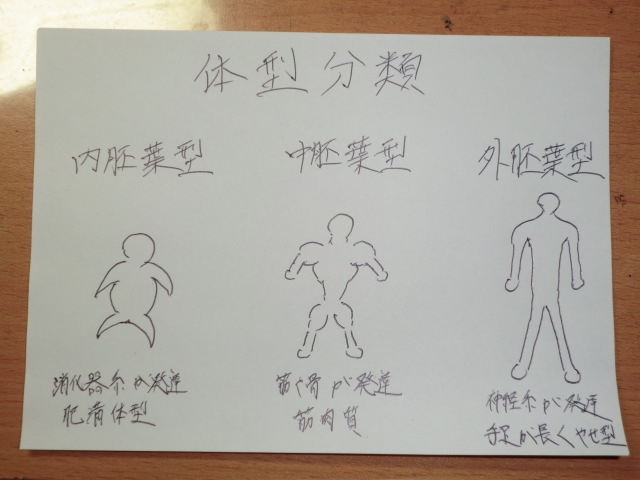 体型分類
内胚葉型
中胚葉型
外胚葉型
消化器系が発達
肥満体型
筋や骨が発達
筋肉質
神経系が発達
手足が長くやせ型